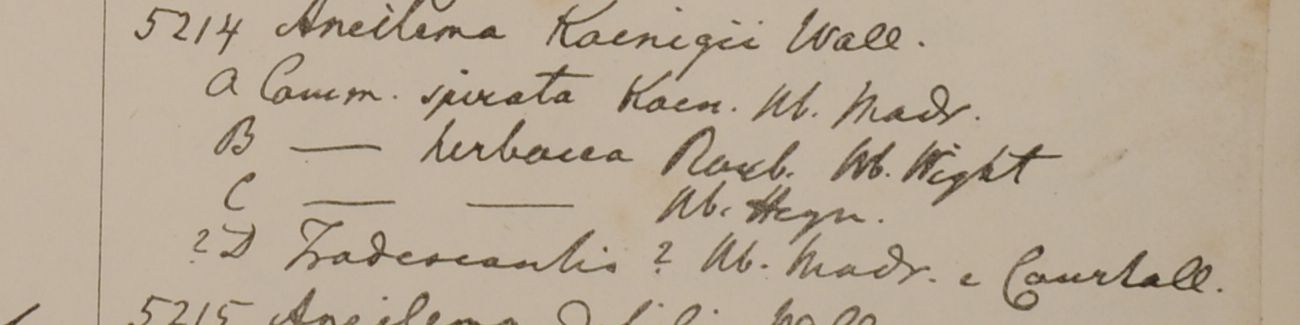 5214 Aneilema Koenigii Wall.
A Comm. spirata Koen. Hb. Madr.
B — herbacea Roxb. Hb. Wight
C — — Hb. Heyn.
? D Tradescantia ? Hb. Madr. e Courtall.
5215 Aneilema Wall